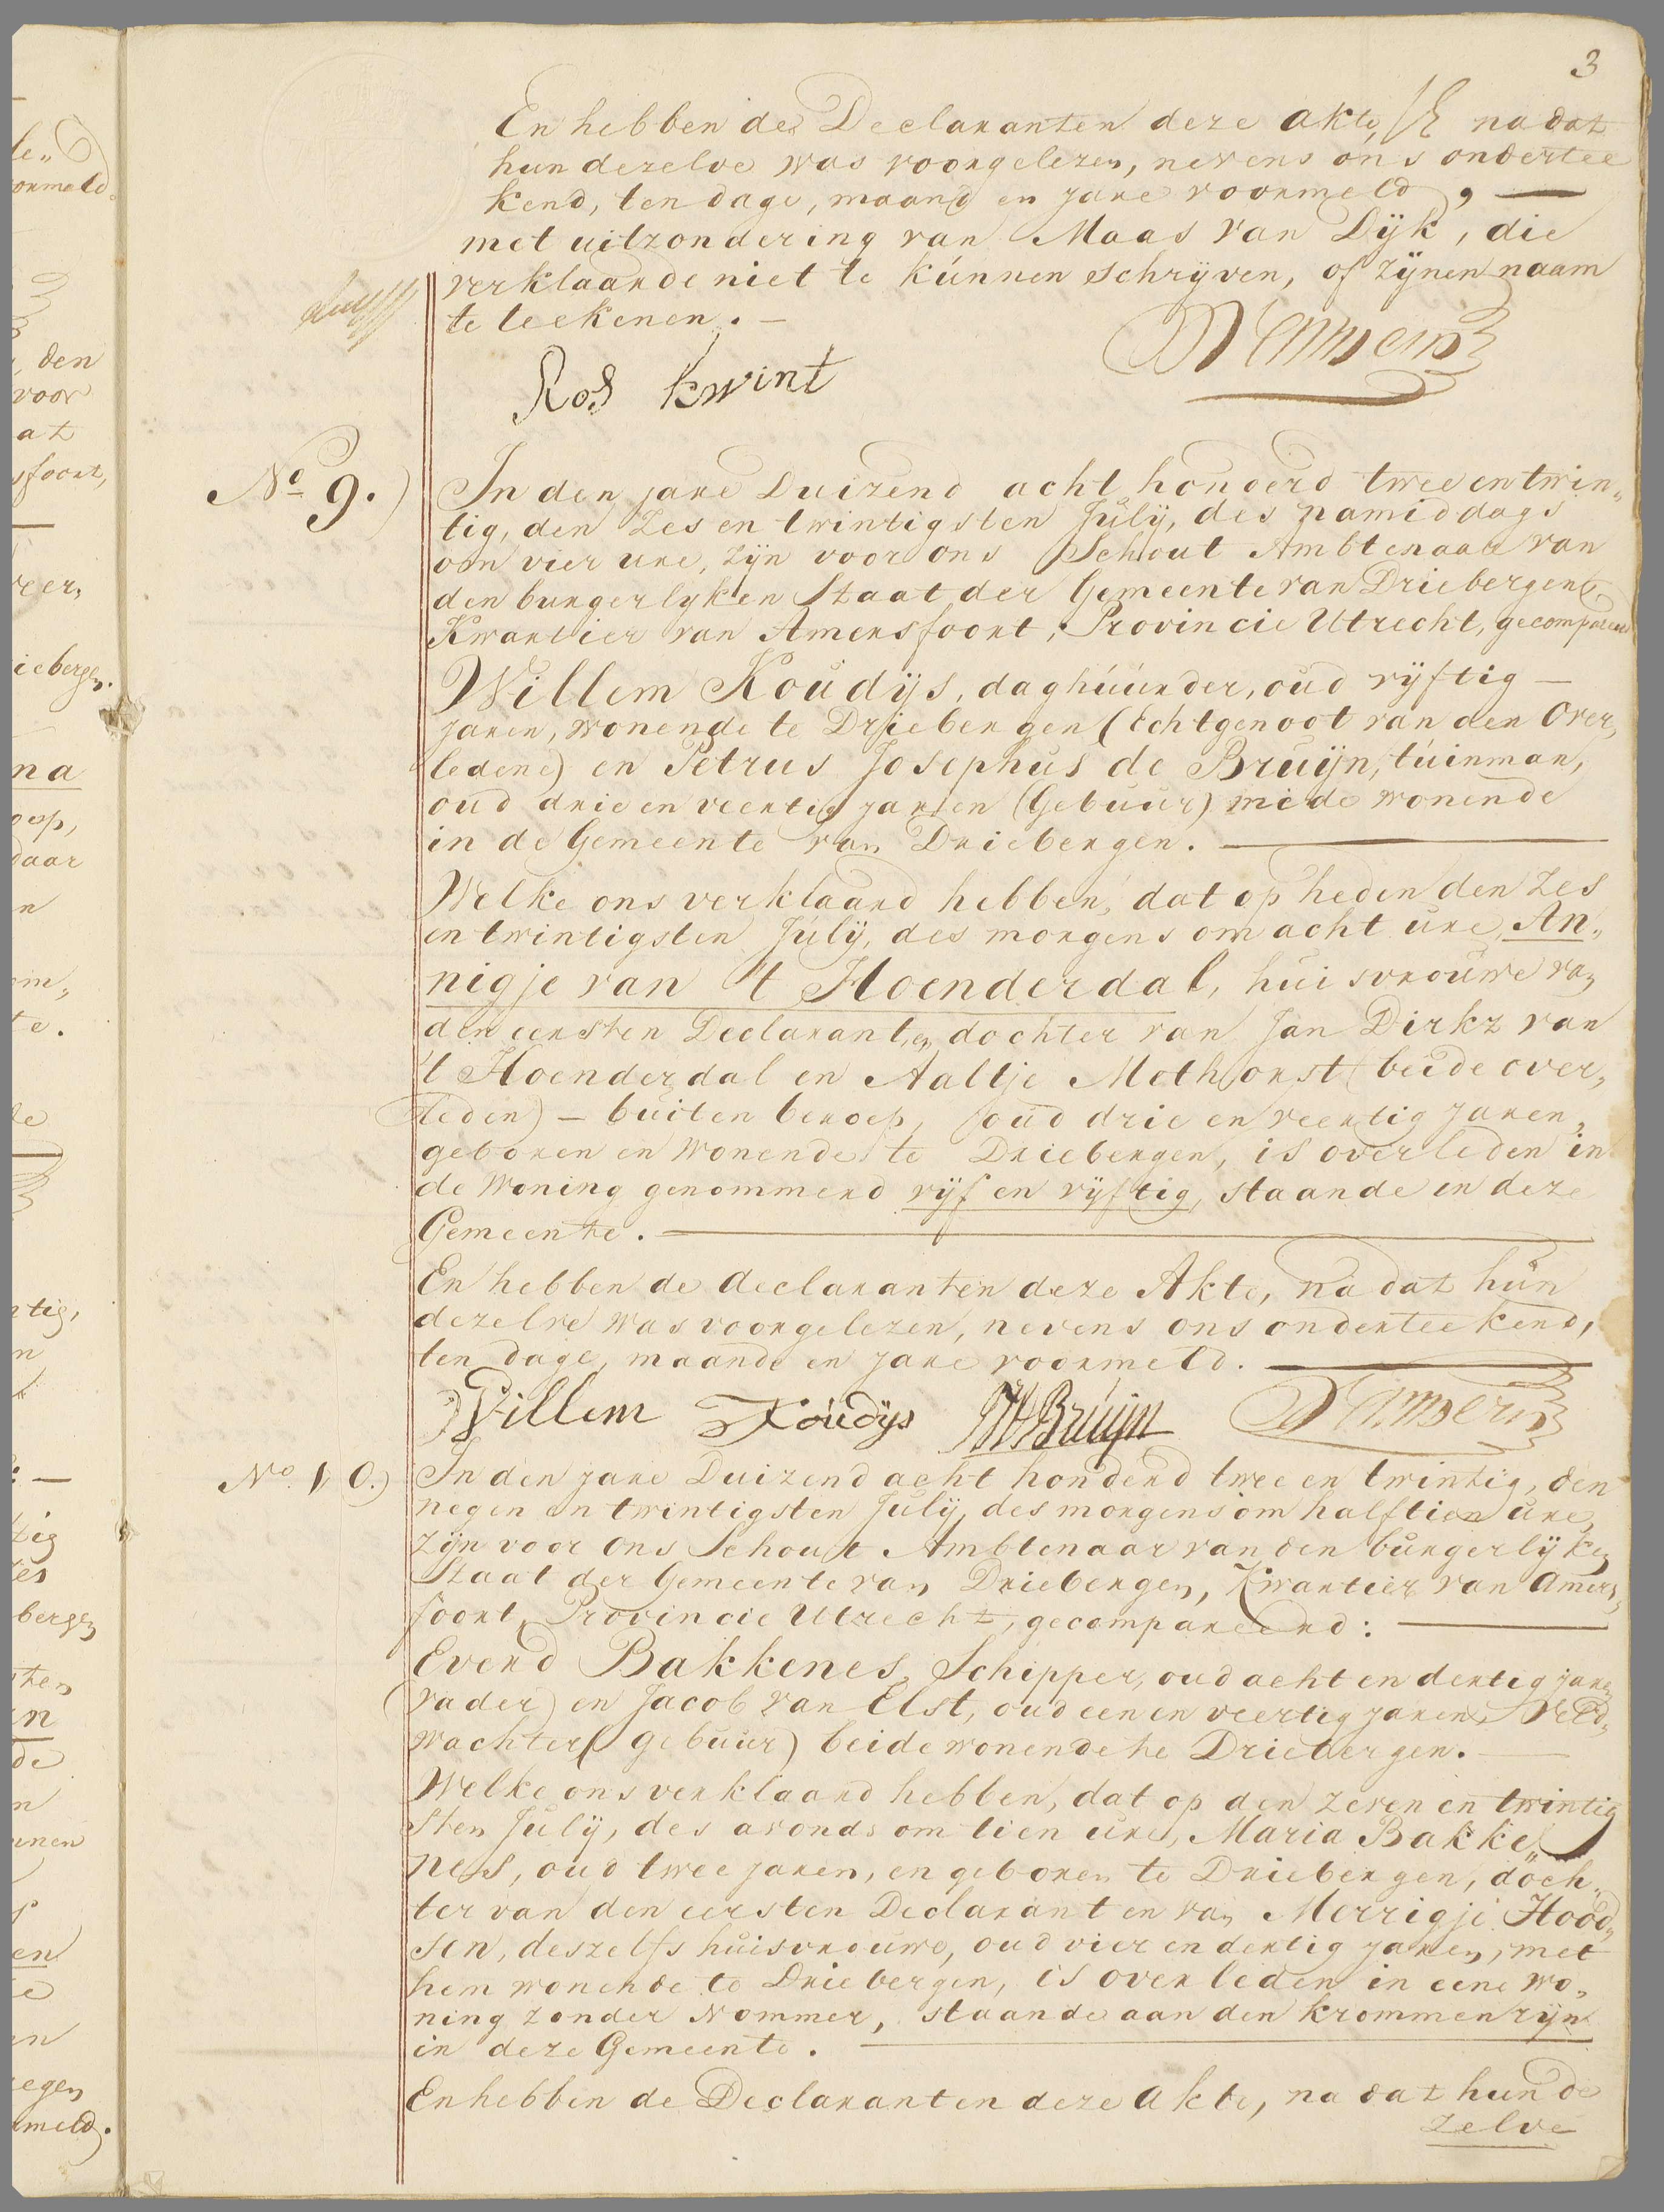 3
En hebben de Declaranten deze akte, na dat
hun dezelve was voorgelezen, nevens ons ondertee
kend, ten dage, maand en jare voormeld, —
met uitzondering van Maas van Dijk, die
verklaarde niet te kúnnen schrijven, of zijnen naam
te teekenen. —
Ros kwint
No 9.)
In den jare Duizend acht honderd twee en twin„
tig, den Zes en twintigsten Julij, des namiddags
om vier ure, zijn voor ons Schout Ambtenaar van
den burgerlyken Staat der Gemeente van Driebergen,
Kwartier van Amersfoort, Provincie Utrecht, gecompareerd
Willem Koudijs, daghúúrder, oud vyftig —
jaren, wonende te Driebergen (Echtgenoot van den Over„
ledene) en Petrus Josephus de Bruijn, túinman,
oud drie en veertig jaren (Gebuur) mede wonende
in de Gemeente van Driebergen. —
Welke ons verklaard hebben, dat op heden den Zes
en twintigsten Julij, des morgens om acht ure, An„
nigje van 't Hoenderdal, huisvrouwe van
den eersten Declarant, en dochter van Jan Dirkz van
't Hoenderdal en Aaltje Methorst (beide over„
leden) — buiten beroep, oud drie en veertig jaren,
geboren en wonende te Driebergen, is overleden in
de Woning genommerd vijf en vijftig, staande in deze
Gemeente. —
En hebben de declaranten deze Akte, na dat hun
dezelve was voorgelezen, nevens ons onderteekend,
ten dage, maand en jare voormeld. —
Willem Koudys Bruijn
No. 10.)
In den jare Duizend acht honderd twee en twintig, den
negen en twintigsten Julij, des morgens om half tien ure,
Zijn voor ons Schout Ambtenaar van den burgerlyken
Staat der Gemeente van Driebergen, Kwartier van Amers„
foort, Provincie Utrecht, gecompareerd: —
Everd Bakkenes, Schipper, oud acht en dertig jaren
(vader) en Jacob van Elst, oud een en veertig jaren, Veld„
wachter (gebuur) beide wonende te Driebergen. —
Welke ons verklaard hebben, dat op den zeven en twintig
sten Julij, des avonds om tien ure, Maria Bakke„
nes, oud twee jaren, en geboren te Driebergen, doch„
ter van den eersten Declarant en van Merrigje Hood„
sen, deszelfs huisvrouwe, oud vier en dertig jaren, met
hem wonende te Driebergen, is overleden in eene wo„
ning zonder Nommer, staande aan den krommen rijn
in deze Gemeente. —
En hebben de Declaranten deze akte, na dat hun de
zelve